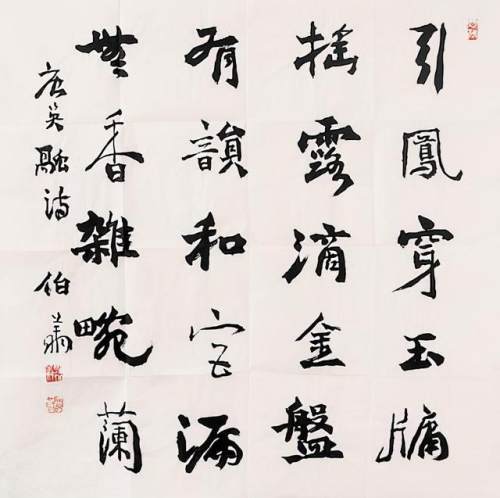 引鳳穿玉牖
摇露滴金盤
有韻和宫漏
無香雜畹蘭
唐吴融詩 伯